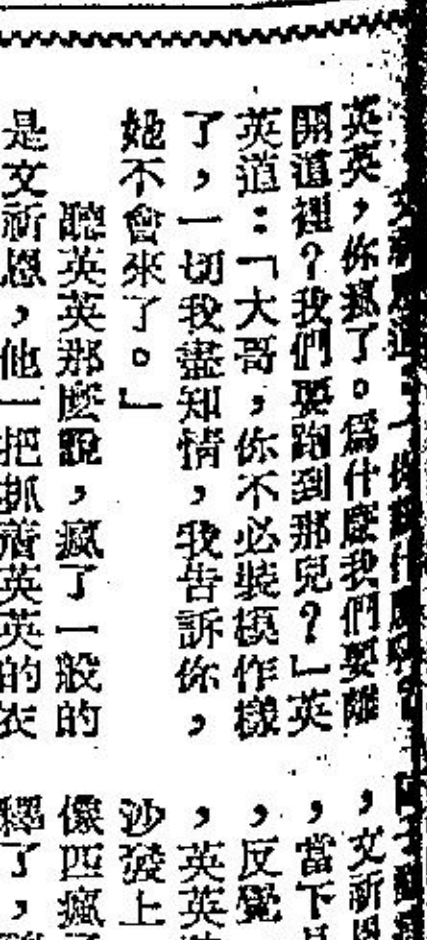 文新恩道：「你說什麼呀？
英英，你瘋了。爲什麼我們要離
開這裡？我們要跑到那兒？」英
英道：「大哥，你不必裝模作樣
了，一切我盡知情，我告訴你，
她不會來了。」
聽英英那麼說，瘋了一般的
是文新恩，他一把抓着英英的衣
，文新恩
，當下
，反覺
，英英
沙發上
像匹瘋了
釋了，